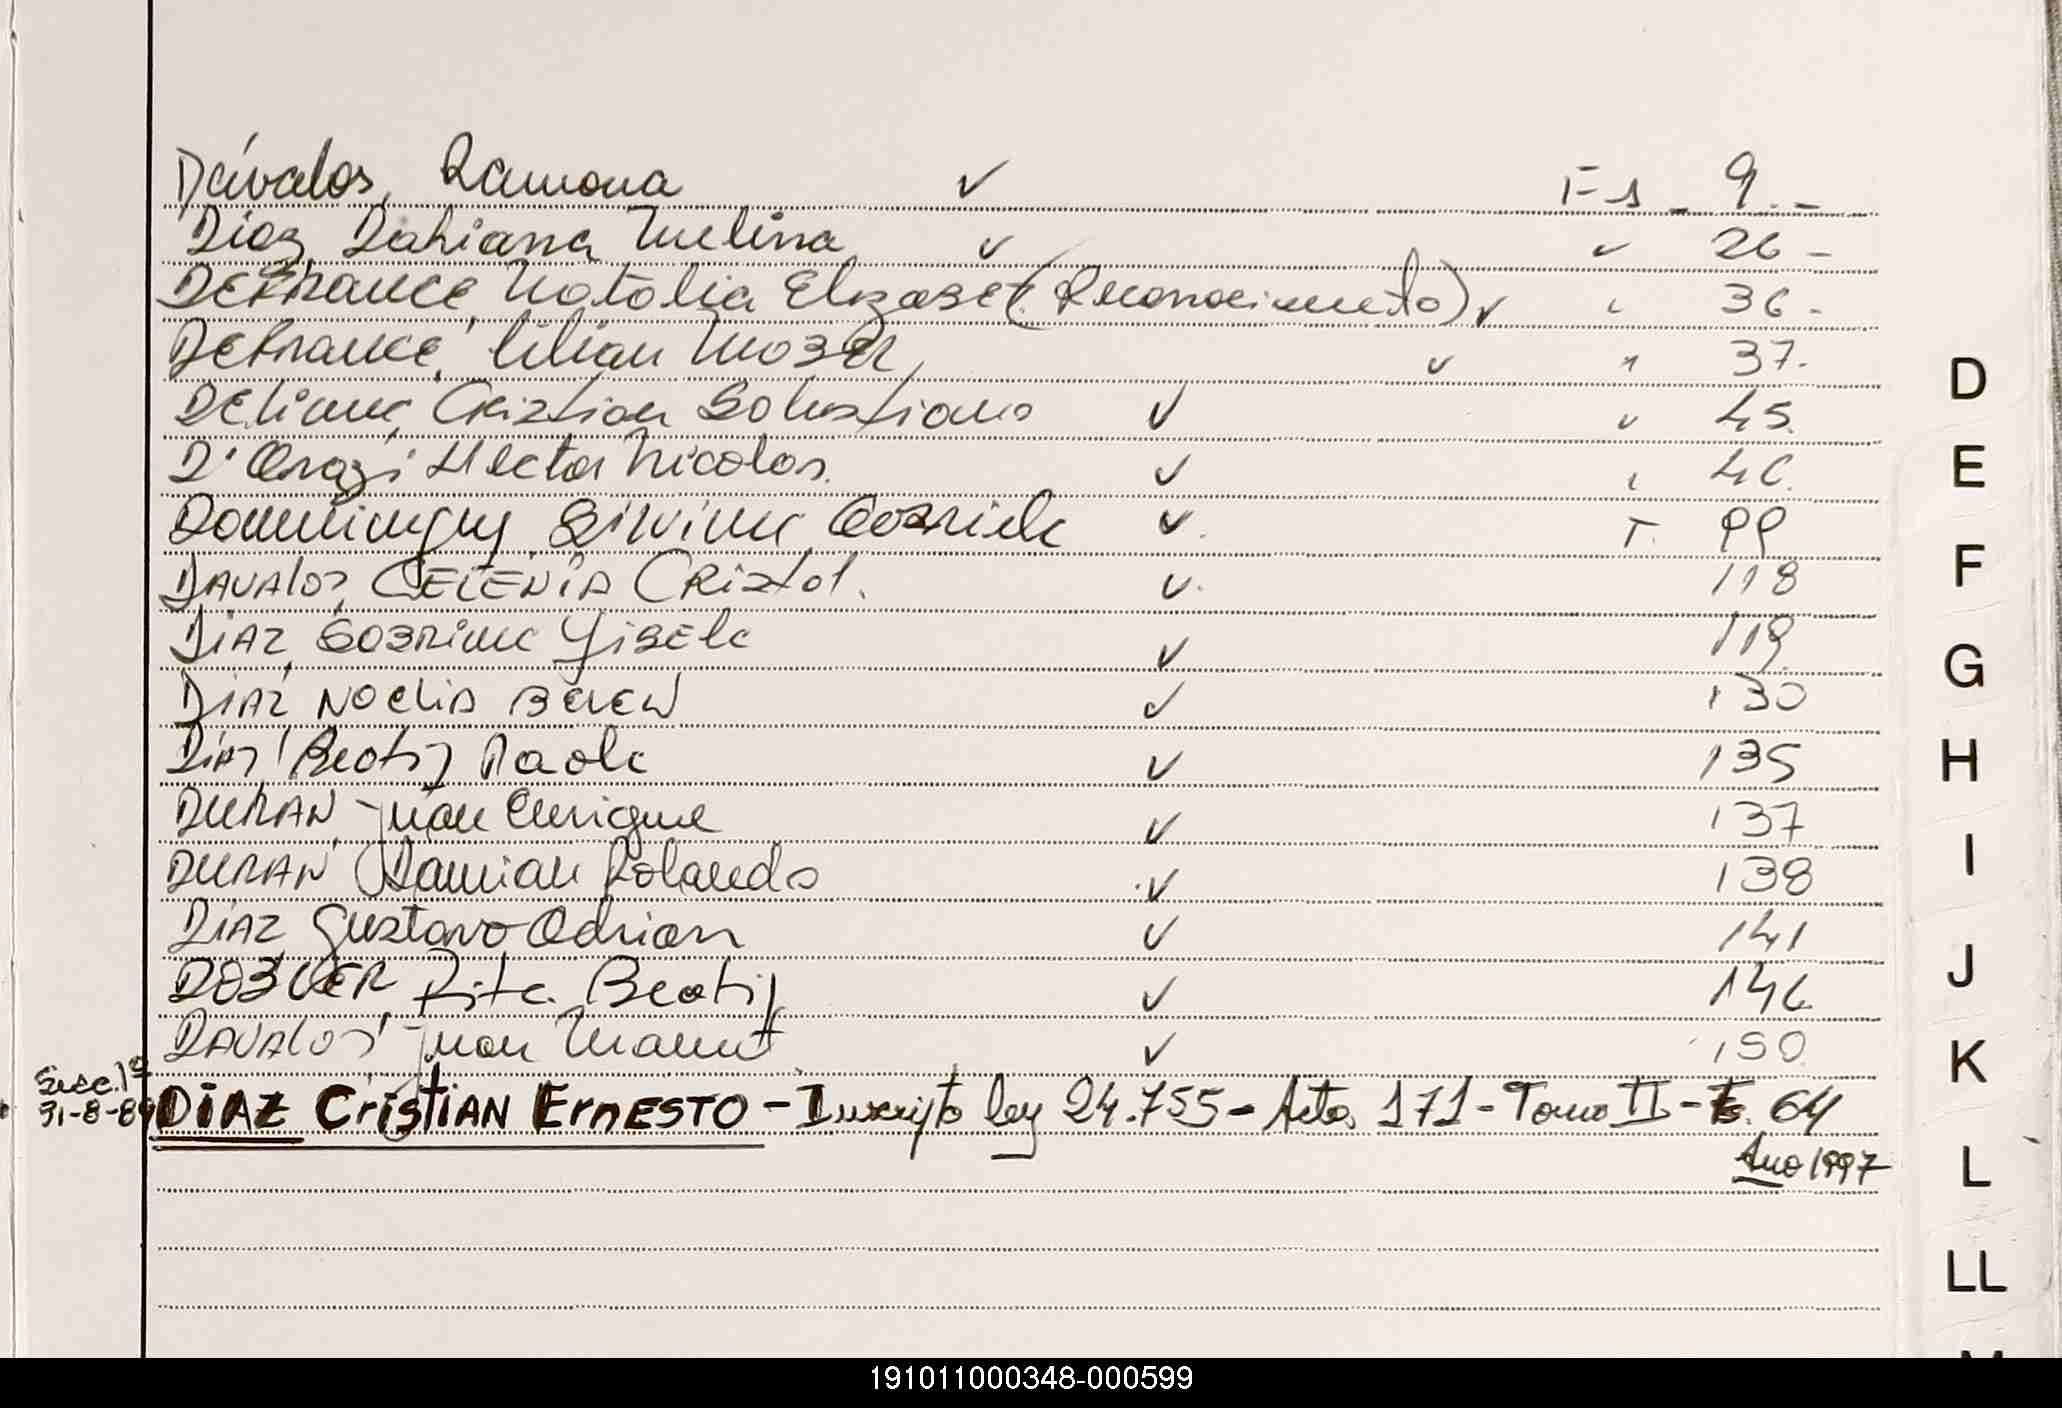 Dávalos, Ramona ✓ Fs _ 9.-
Díaz, Dahiana Melina ✓ " 26 -
DEFRANCE, Natalia Elizabet (Reconocimiento) ✓ " 36 -
DEFRANCE, Lilian Mabel ✓ " 37.
Cristian Salustiano ✓ " 45.
D'Orazi Hector Nicolas. ✓ " 46.
Domínguez, Silvina Gabriela ✓. 99
DAVALOS, CELENIA Cristal. ✓. 118
DIAZ, Sabrina Gisela ✓ 119.
DIAZ NOELIA BELEN ✓ 130
Diaz, Beatriz Paola ✓ 135
DURAN, Juan Enrique ✓ 137
DURAN, Damian Rolando ✓ 138
DIAZ Gustavo Adrian ✓ 141
Rita Beatriz ✓ 146
DAVALOS, Juan Manuel ✓ 150
Secc. 1ª
31-8-89
DIAZ CristIAN ErnESTO - Inscripto ley 24.755 - Acta 171 - Tomo II - Fs. 64
Año 1997
D
E
F
G
H
I
J
K
L
LL
M
191011000348-000599